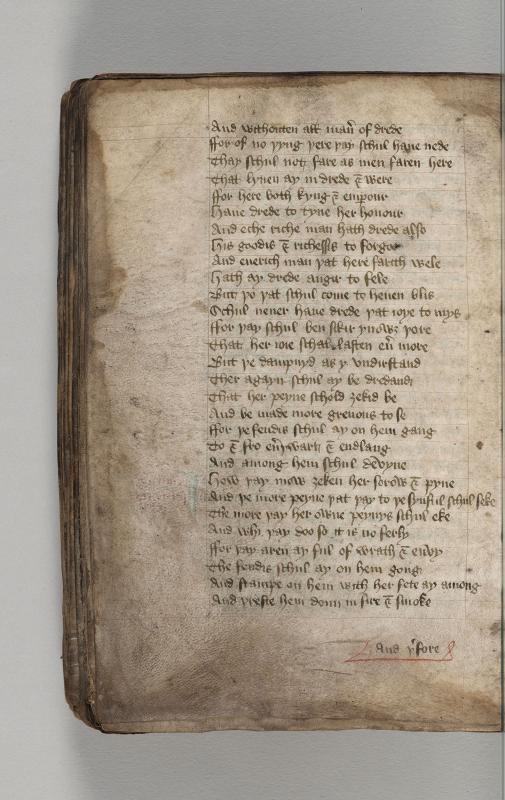 And withouten all man̄ of drede
ffor of no yyng yere yay schul haue nede
Thay schul not fare as men faren here
That lyuen ay in drede & were
ffor here both kyng & emp̄our
Haue drede to tyne her honour
And eche riche man hath drede also
His goodis & richesses to forgoo
And euerich man yat here farith wele
Hath ay drede angur to fele
But yo yat schul come to heuen blis
Schul neuer haue drede yat ioye to mys
ffor yay schul ben sikir ynowȝ yore
That her ioie schal lasten eū more
But ye dampnyd as y vndirstand
Ther agayn schul ay be dredand
That her peyne schold ȝekid be
And be made more greuous to se
ffor ye fendis schul ay on hem gang
To & fro eūywart & endlang
And among hem schul deuyne
How yay mow ȝeken her sorow & pyne
And ye more peyne yat yay to ye synful schul seke
The more yay her owne peynys schul eke
And why yay doo so it is no ferly
ffor yay aren ay ful of wrath & envy
The fendis schul ay on hem gong
And stampe on hem with her fete ay among
And yreste hem doun in fire & smoke
And yͬfore